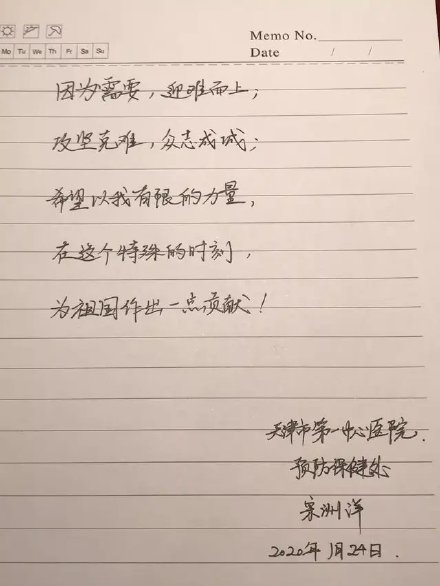 Memo No.
Mo Tu We Th Fr Sa Su
Date / /
因为需要，迎难而上；
攻坚克难，众志成城；
希望以我有限的力量，
在这个特殊的时刻，
为祖国作出一点贡献！
天津市第一中心医院.
预防保健处
宋洲洋
2020年1月24日.